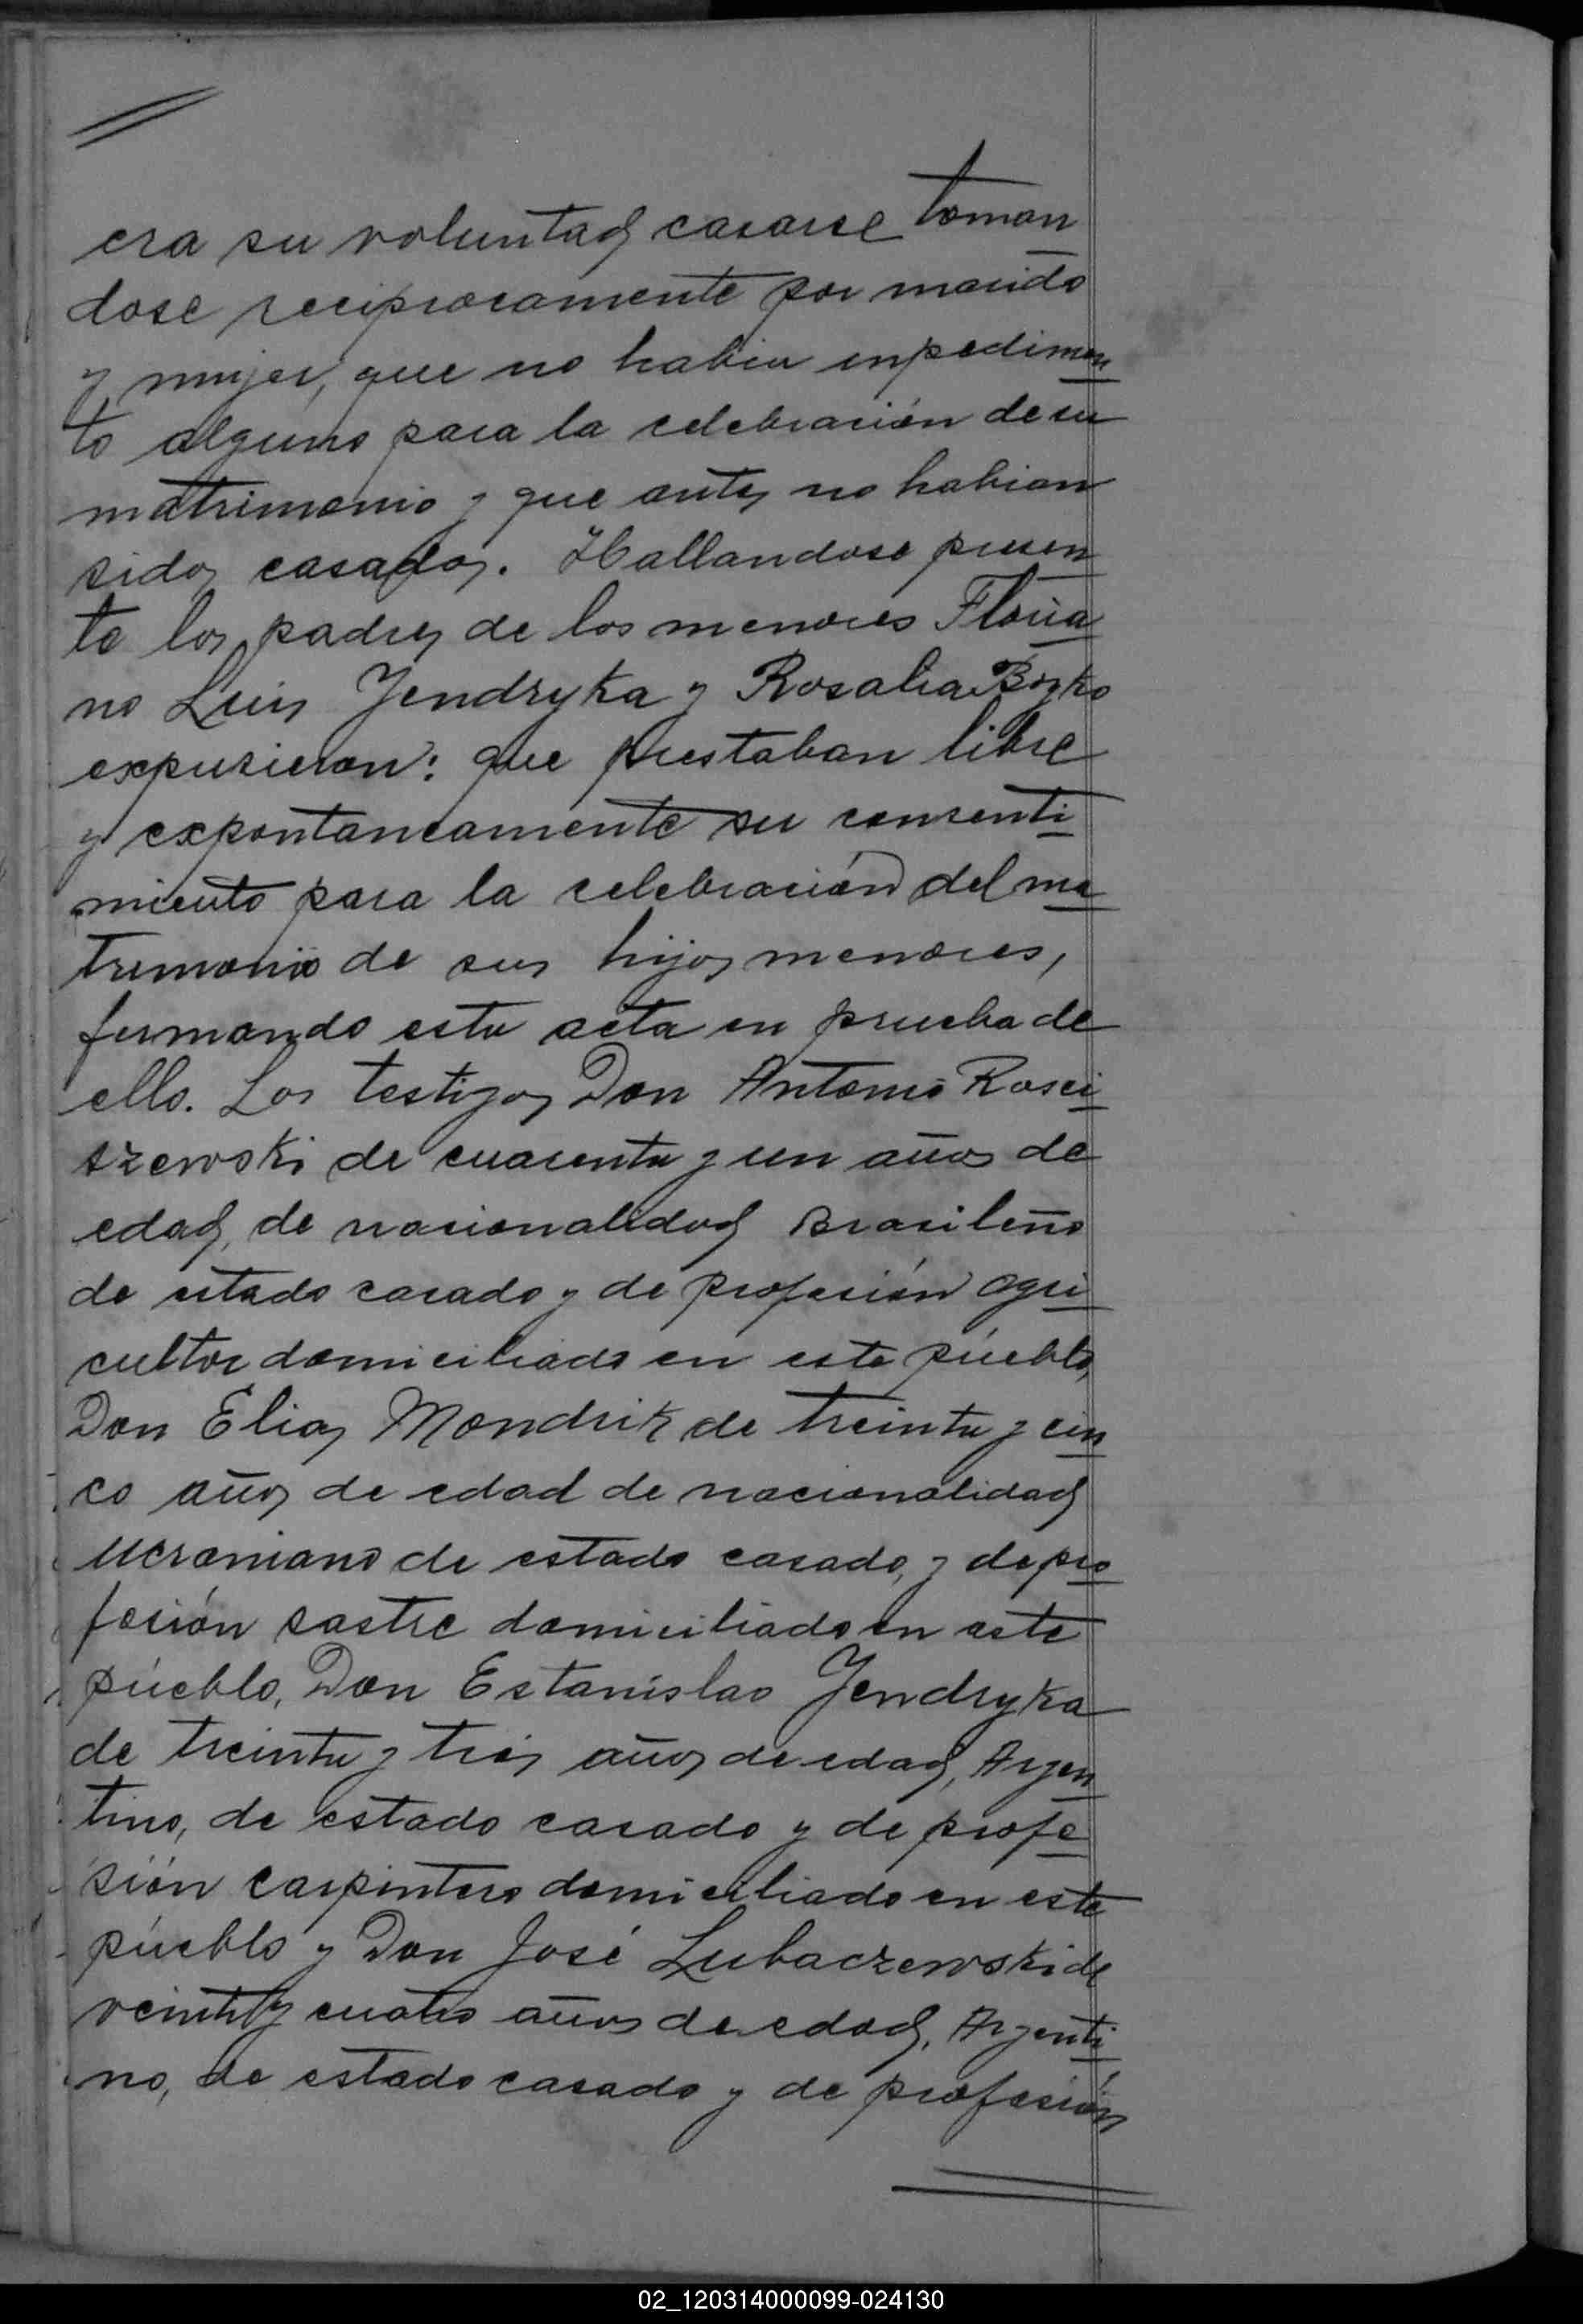 era su voluntad casarse toman
dose reciprocamente por marido
y mujer, que no habia inpedimen
to alguno para la celebración de su
matrimonio y que antes no habian
sidos casados. Hallandose presen
te los padres de los menores Floria
no Luis Jendryka y Rosalia Boyko
expusieron: que prestaban libre
y expontaneamente su consenti
miento para la celebración del ma
trimonio de sus hijos menores,
firmando esta acta en prueba de
ello. Los testigos Don Antonio Rosci
szewski de cuarenta y un años de
edad, de nacionalidad Brasileño
de estado casado y de profesión agri
cultor domiciliado en este pueblo,
Don Elias Mondrik de treinta y cin
co años de edad de nacionalidad
Ucraniano de estado casado, y de pro
fesión sastre domiciliado en este
pueblo, Don Estanislao Jendryka
de treinta y tres años de edad, Argen
tino, de estado casado y de profe
sión carpintero domiciliado en este
pueblo y Don José Lubaczewski de
veinte y cuatro años de edad, Argenti
no, de estado casado y de profesión
02_120314000099-024130